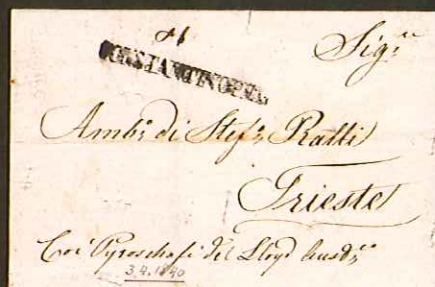 Sig.ri
CONSTANTINOPEL
Amb.o di Stef.o Ralli
Trieste
Coi Piroscafi del Lloyd Aust.co
3.4.1840